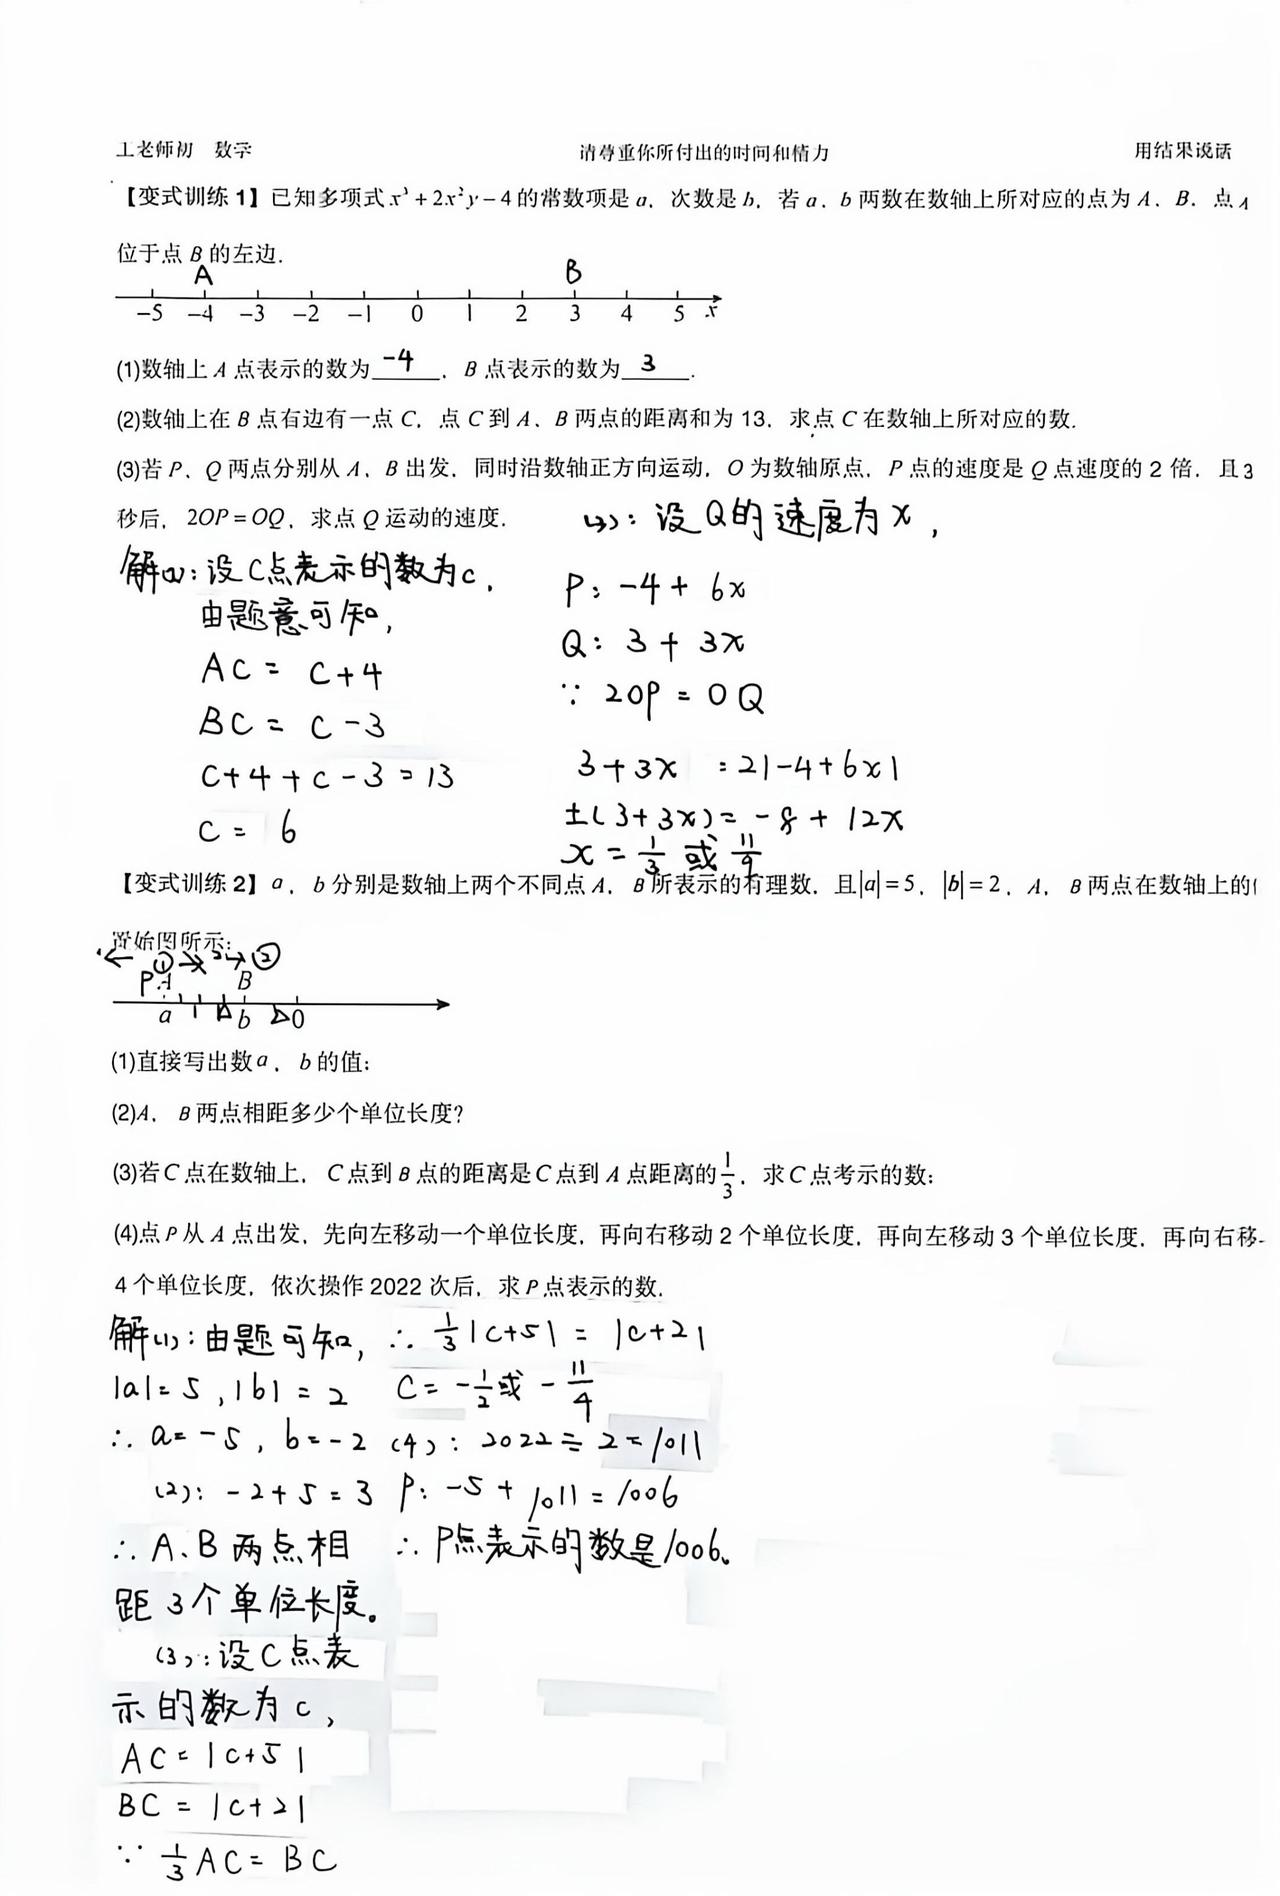 工老师初 数学 请尊重你所付出的时间和精力 用结果说话
【变式训练 1】已知多项式 x³+2x²y−4 的常数项是 a，次数是 b，若 a，b 两数在数轴上所对应的点为 A、B，点 A
位于点 B 的左边.
A B
−5 −4 −3 −2 −1 0 1 2 3 4 5 x
(1)数轴上 A 点表示的数为 -4 ，B 点表示的数为 3 .
(2)数轴上在 B 点有边有一点 C，点 C 到 A、B 两点的距离和为 13，求点 C 在数轴上所对应的数.
(3)若 P、Q 两点分别从 A、B 出发，同时沿数轴正方向运动，O 为数轴原点，P 点的速度是 Q 点速度的 2 倍，且 3
秒后，2OP=OQ，求点 Q 运动的速度.
解(2)：设C点表示的数为c，
由题意可知，
AC = c+4
BC = c-3
c+4+c-3=13
c = 6
(3)：设Q的速度为x，
P：-4+6x
Q：3+3x
∵ 2OP=OQ
3+3x =2|-4+6x|
±(3+3x)=-8+12x
x=1/3 或 11/9
【变式训练 2】a，b 分别是数轴上两个不同点 A，B 所表示的有理数，且|a|=5，|b|=2，A，B 两点在数轴上的
置始图所示：
① 2 ②
P A B
a b 0
(1)直接写出数 a，b 的值；
(2)A，B 两点相距多少个单位长度？
(3)若 C 点在数轴上，C 点到 B 点的距离是 C 点到 A 点距离的1/3，求 C 点考示的数；
(4)点 P 从 A 点出发，先向左移动一个单位长度，再向右移动 2 个单位长度，再向左移动 3 个单位长度，再向右移
4 个单位长度，依次操作 2022 次后，求 P 点表示的数.
解(1)：由题可知，
|a|=5，|b|=2
∴ a=-5，b=-2
(2)：-2+5=3
∴ A、B 两点相
距 3个单位长度。
(3)：设C点表
示的数为 c，
AC=|c+5|
BC=|c+2|
∵ 1/3AC=BC
∴ 1/3|c+5|=|c+2|
C=-1/2或-11/4
(4)：2022÷2=1011
P：-5+1011=1006
∴ P点表示的数是1006。